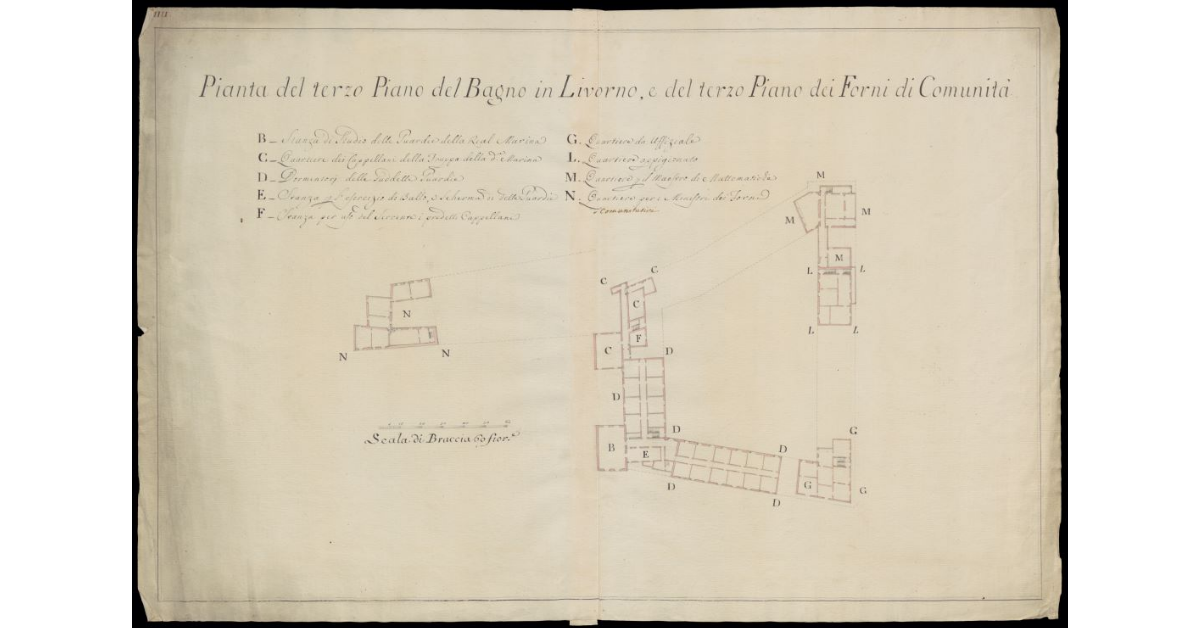 Pianta del terzo Piano del Bagno in Livorno, e del terzo Piano dei Forni di Comunità
B_ Stanza di Studio delle Guardie della Real Marina
C_ Quartiere dei Cappellani della Truppa della d.ª Marina
D_ Dormentorj delle Guardie
E_ Stanza Esercizio di Ballo, e Scherma di dette Guardie
F_ Stanza per uso del Servente i predetti Cappellani
G. Quartiere da Uffiziale
L. Quartiere appigionato
M. Quartiere Maestro di Mattematiche
N. Quartiere per i Ministri dei Forni
M
M
M
M
L
L
L
L
C
C
C
F
C
D
D
D
B
E
D
D
D
G
G
G
N
N
N
Scala di Braccia 60 fior.ᵉ